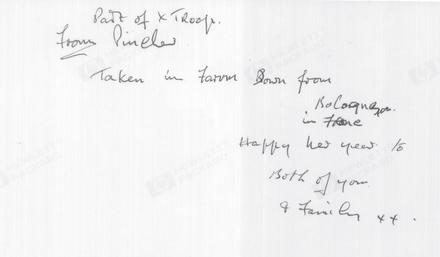 Part of X Troop.
From Pincher
Taken in Farm Down from
Bologna
in
Happy new year to
Both of you
& Family xx.